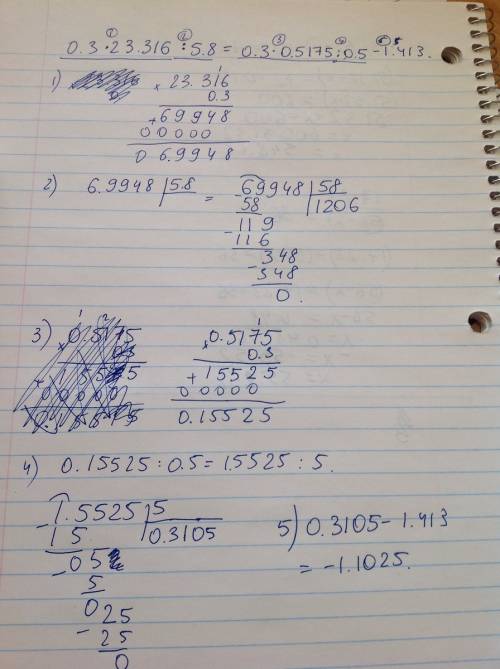 ① ② ③ ④ 5
0.3·23.316 : 5.8 = 0.3·0.5175:0.5 - 1.413.
1) × 23.316
0.3
+69948
00000
06.9948
2) 6.9948 |5.8 = 69948 |58
58 1206
-119
116
-348
348
0.
3) ×0.5175 ×0.5175
0.3 0.3
+15525
00000
0.15525
4) 0.15525 : 0.5 = 1.5525 : 5.
-1.5525 |5
15 0.3105
-05
5
025
-25
0
5) 0.3105 - 1.413
= -1.1025.